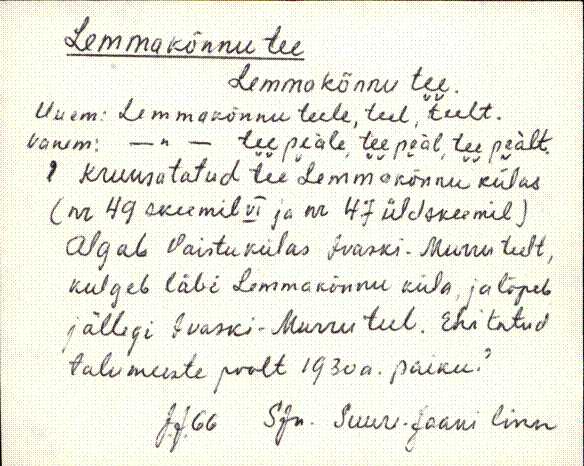 Lemmakõnnu tee
Lemmakõnnu te̬e̬.
Uuem: Lemmakõnnu teele, teel, teelt.
Vanem: —"— te̬e̬ pe̬ale, te̬e̬ pe̬al, te̬e̬ pe̬alt.
Kruusatatud tee Lemmakõnnu külas
(nr 49 skeemil VI ja nr 47 üldskeemil)
Algab Vaistu külas Ivaski-Murru teelt,
kulgeb läbi Lemmakõnnu küla, ja lõpeb
jällegi Ivaski-Murru teel. Ehitatud
talumeeste poolt 1930 a. paiku.
66 SJn. Suure-Jaani linn